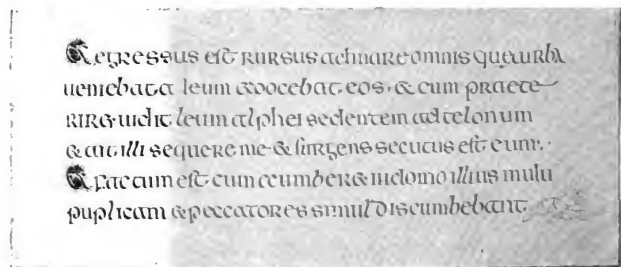 & egressus est rursus ad mare omnisque turba
ueniebat ad eum & docebat eos · & cum praete
rir& uidit leuin alphei sedentem ad telonium
& ait illi sequere me & surgens secutus est eum :·
& factum est cum accumber& in domo illius multi
puplicani & peccatores simul discumbebant